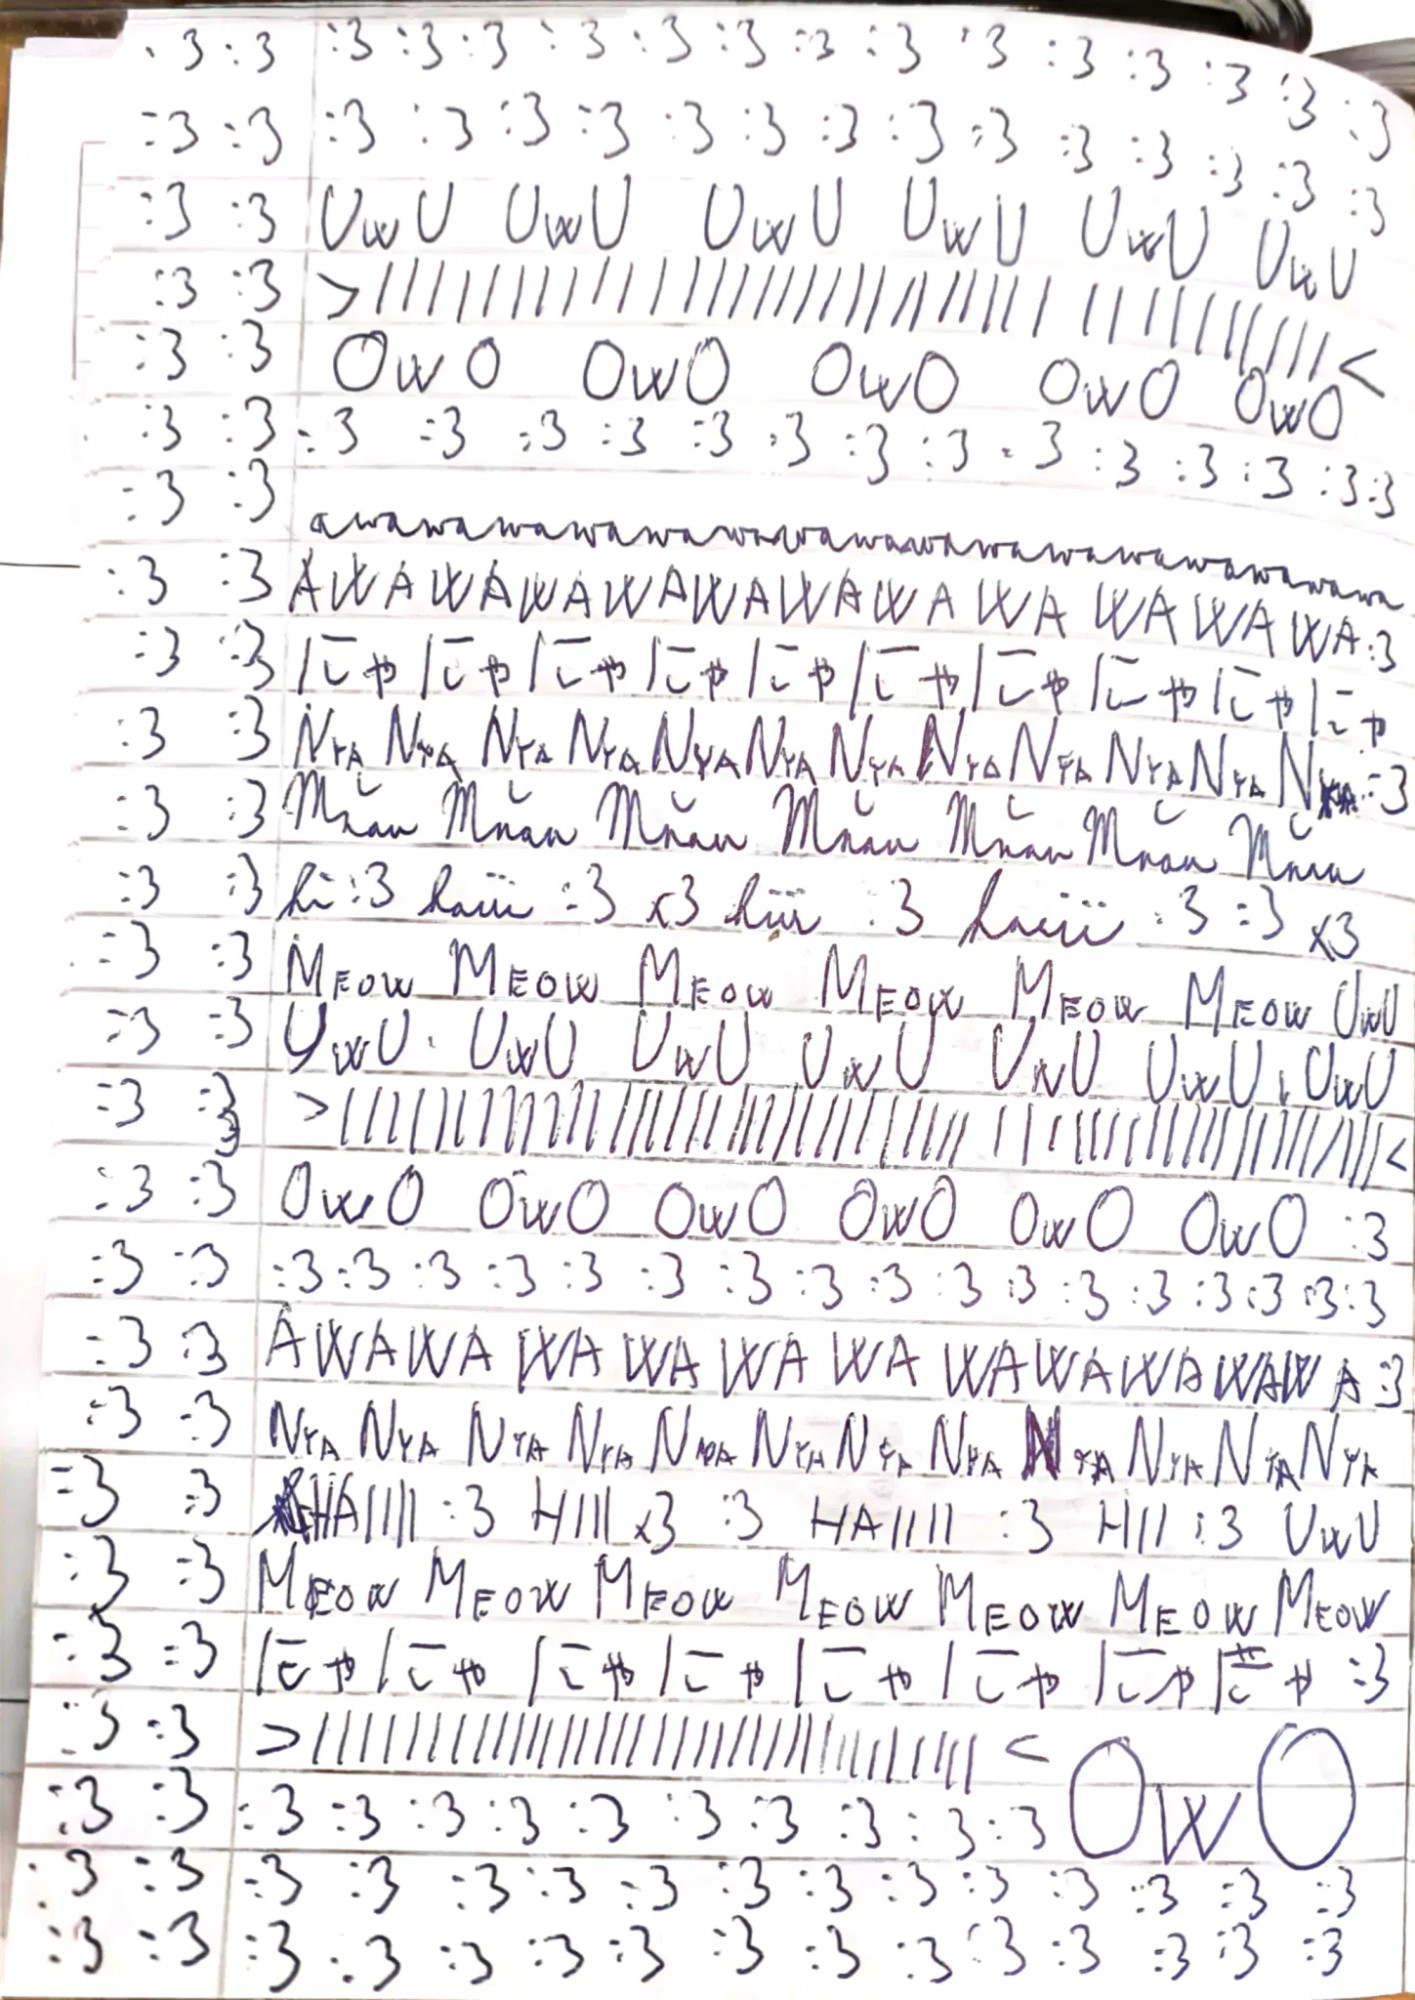 :3 :3 :3 :3 :3 :3 :3 :3 :3 :3 :3 :3 :3 :3 :3 :3
:3 :3 :3 :3 :3 :3 :3 :3 :3 :3 :3 :3 :3 :3 :3 :3
:3 :3 UwU UwU UwU UwU UwU UwU :3
:3 :3 >//////////////////////////////////////<
:3 :3 OwO OwO OwO OwO OwO
:3 :3 :3 :3 :3 :3 :3 :3 :3 :3 :3 :3 :3 :3 :3 :3
:3 :3 awawawawawawawawawawawawawawawa
:3 :3 AWAWAWAWAWAWAWAWAWAWAWA:3
:3 :3 |にゃ|にゃ|にゃ|にゃ|にゃ|にゃ|にゃ|にゃ|にゃ|にゃ
:3 :3 NYA NYA NYA NYA NYA NYA NYA NYA NYA NYA NYA NYA :3
:3 :3 Mňau Mňau Mňau Mňau Mňau Mňau Mňau
:3 :3 hi :3 haiii :3 x3 hiii :3 haiii :3 :3 x3
:3 :3 MEOW MEOW MEOW MEOW MEOW MEOW UwU
:3 :3 UwU UwU UwU UwU UwU UwU UwU
:3 :3 >//////////////////////////////////////////////<
:3 :3 OwO OwO OwO OwO OwO OwO :3
:3 :3 :3 :3 :3 :3 :3 :3 :3 :3 :3 :3 :3 :3 :3 :3 :3
:3 :3 AWAWAWAWAWAWAWAWAWAWAWA :3
:3 :3 NYA NYA NYA NYA NYA NYA NYA NYA NYA NYA NYA NYA
:3 :3 HAIIII :3 HIII x3 :3 HAIIII :3 HII :3 UwU
:3 :3 MEOW MEOW MEOW MEOW MEOW MEOW MEOW
:3 :3 |にゃ|にゃ|にゃ|にゃ|にゃ|にゃ|にゃ|にゃ :3
:3 :3 >////////////////////////////////< OwO
:3 :3 :3 :3 :3 :3 :3 :3 :3 :3 :3 :3
:3 :3 :3 :3 :3 :3 :3 :3 :3 :3 :3 :3 :3 :3 :3
:3 :3 :3 :3 :3 :3 :3 :3 :3 :3 :3 :3 :3 :3 :3